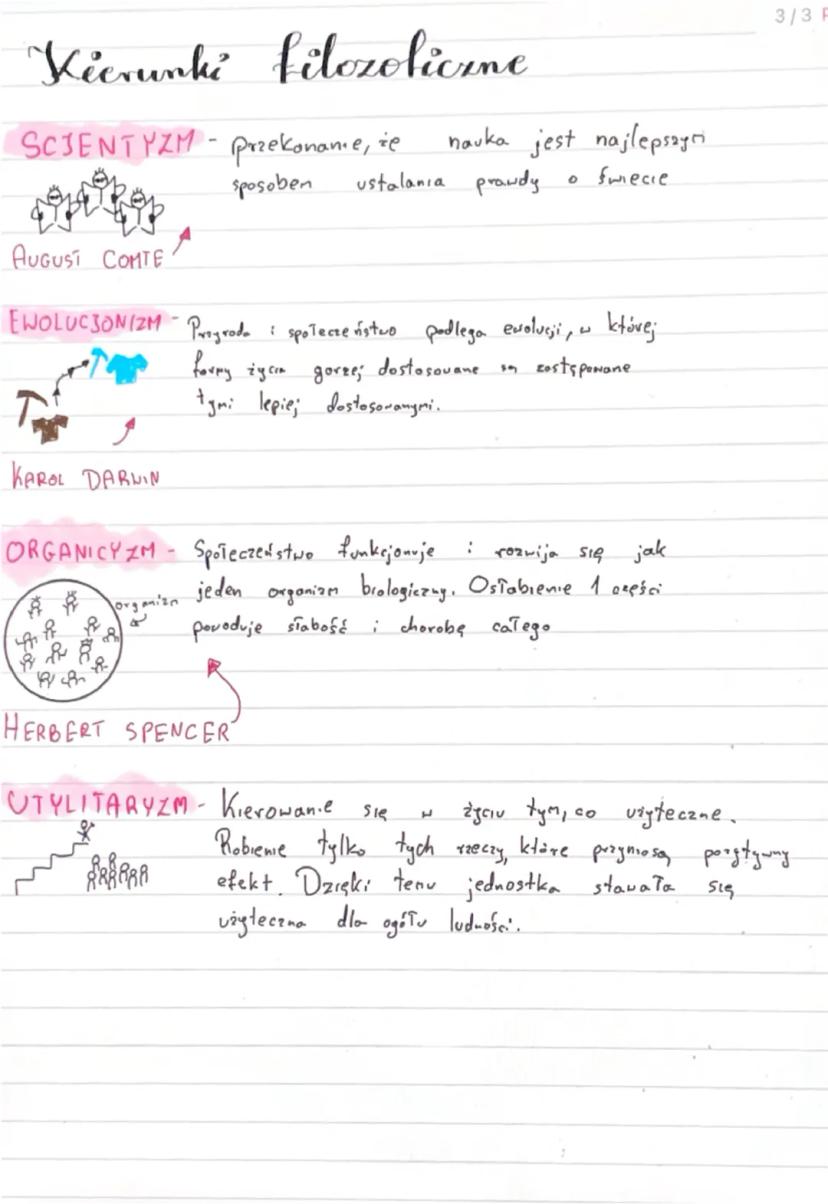 3/3 F
Kierunki filozoficzne
SCJENTYZM - przekonanie, że nauka jest najlepszym
sposobem ustalania prawdy o świecie
AUGUST COMTE
EWOLUCJONIZM - Przyroda i społeczeństwo podlega ewolucji, w której
formy życia gorzej dostosowane są zastępowane
tymi lepiej dostosowanymi.
KAROL DARWIN
ORGANICYZM - Społeczeństwo funkcjonuje i rozwija się jak
jeden organizm biologiczny. Osłabienie 1 części
powoduje słabość i chorobę całego
organizm
HERBERT SPENCER
UTYLITARYZM - Kierowanie się w życiu tym, co użyteczne.
Robienie tylko tych rzeczy, które przyniosą pozytywny
efekt. Dzięki temu jednostka stawała się
użyteczna dla ogółu ludności.